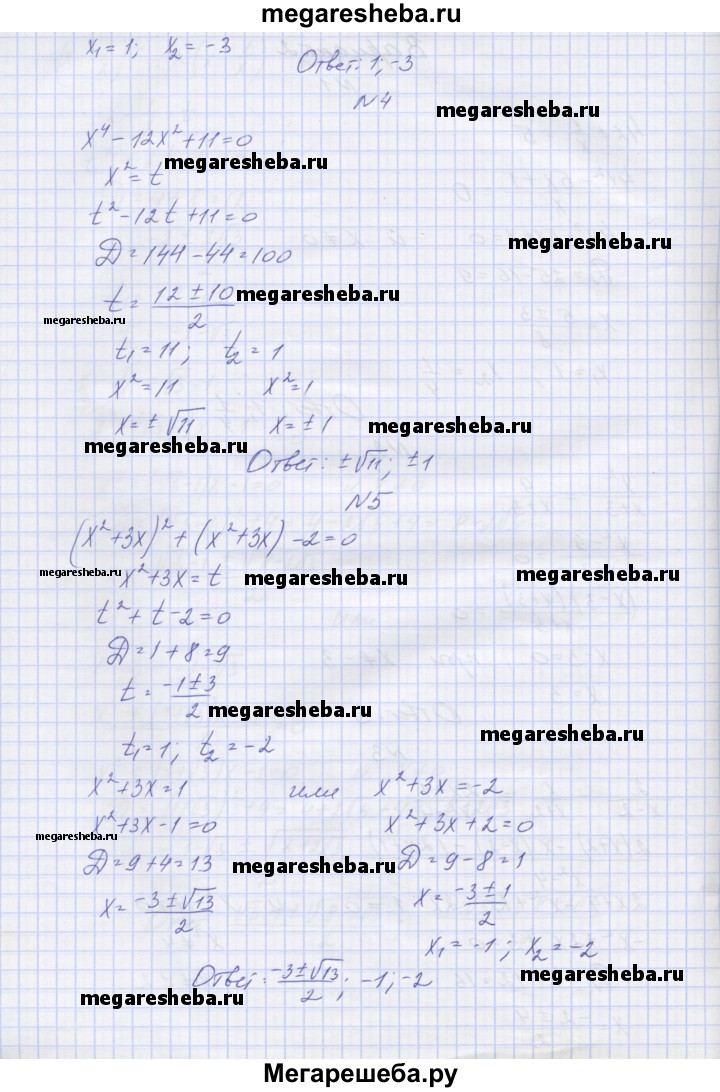 megaresheba.ru
x₁ = 1; x₂ = -3
Ответ: 1; -3
N4
megaresheba.ru
x⁴ - 12x² + 11 = 0
megaresheba.ru
x² = t
t² - 12t + 11 = 0
megaresheba.ru
D = 144 - 44 = 100
t = (12 ± 10)/2
megaresheba.ru
megaresheba.ru
t₁ = 11; t₂ = 1
x² = 11 x² = 1
x = ±√11 x = ±1
megaresheba.ru
megaresheba.ru
Ответ: ±√11; ±1
N5
(x² + 3x)² + (x² + 3x) - 2 = 0
megaresheba.ru x² + 3x = t megaresheba.ru megaresheba.ru
t² + t - 2 = 0
D = 1 + 8 = 9
t = (-1 ± 3)/2
megaresheba.ru
megaresheba.ru
t₁ = 1; t₂ = -2
x² + 3x = 1 или x² + 3x = -2
x² + 3x - 1 = 0 x² + 3x + 2 = 0
megaresheba.ru
D = 9 + 4 = 13 megaresheba.ru D = 9 - 8 = 1
x = (-3 ± √13)/2 x = (-3 ± 1)/2
x₁ = -1; x₂ = -2
Ответ: (-3 ± √13)/2; -1; -2
megaresheba.ru
megaresheba.ru
megaresheba.ru
Мегарешеба.ру